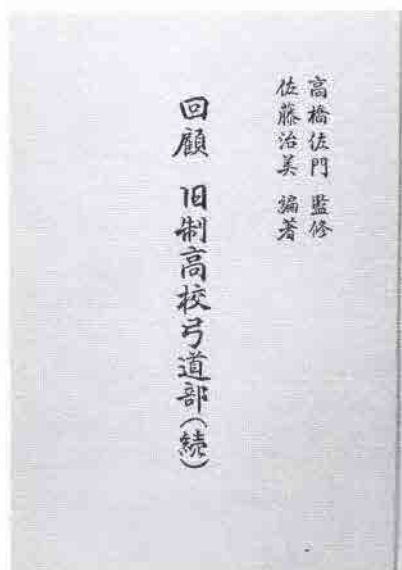 高橋佐門 監修
佐藤治美 編著
回顧 旧制高校弓道部(続)